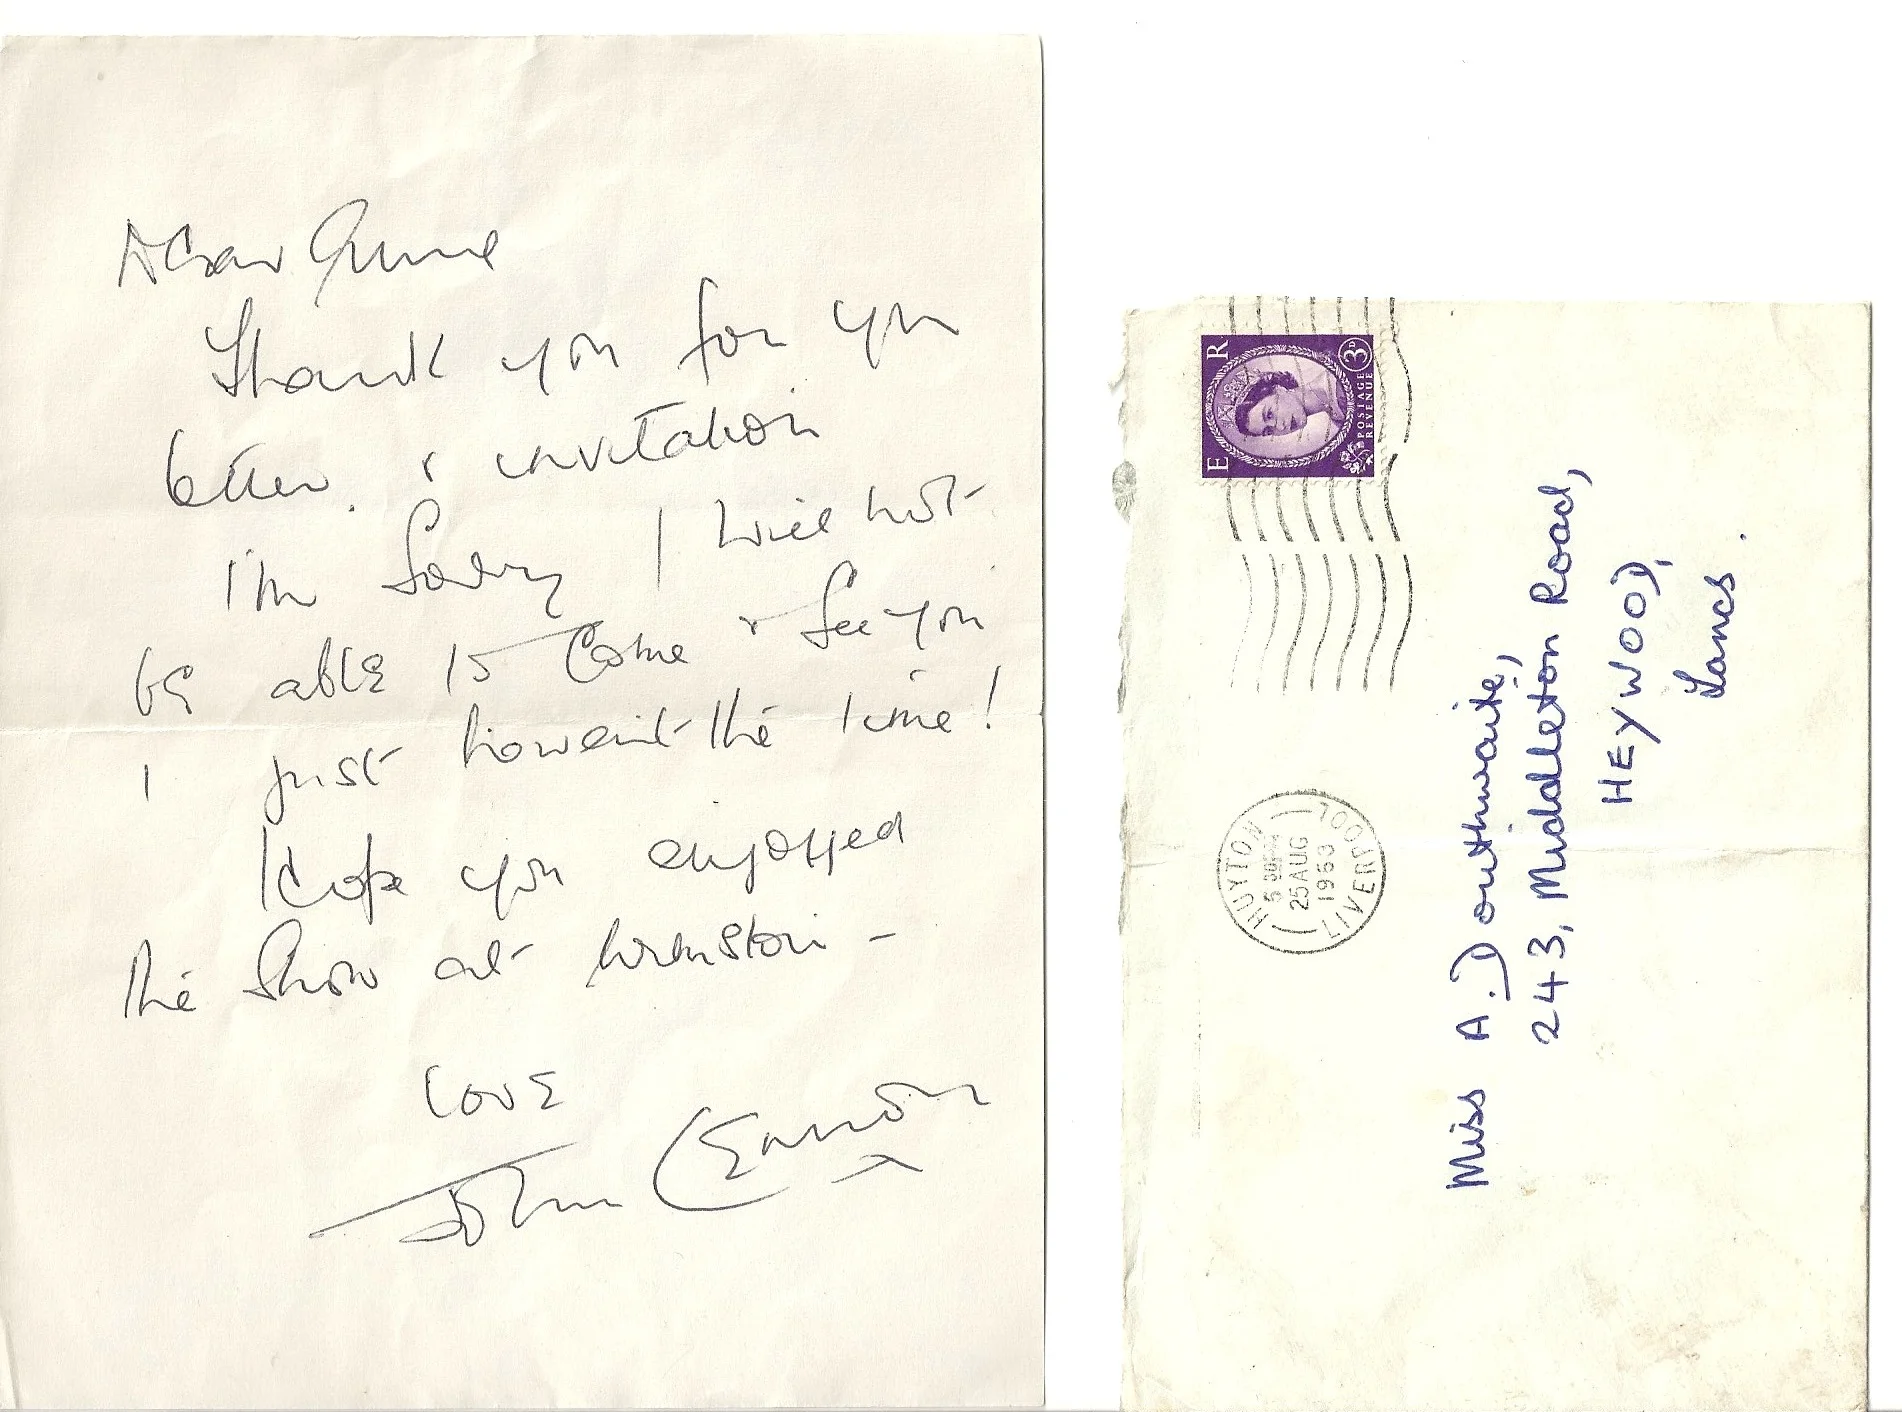 Dear Anne
Thank you for you
letter. & invitation
I'm sorry I will not
be able to come & see you
I just haven't the time!
Hope you enjoyed
the show at Urmston -
Love
John Lennon
X
E R
3D
POSTAGE
REVENUE
HUYTON
25 AUG
1963
LIVERPOOL
Miss A. Douthwaite,
243, Middleton Road,
HEYWOOD,
Lancs.